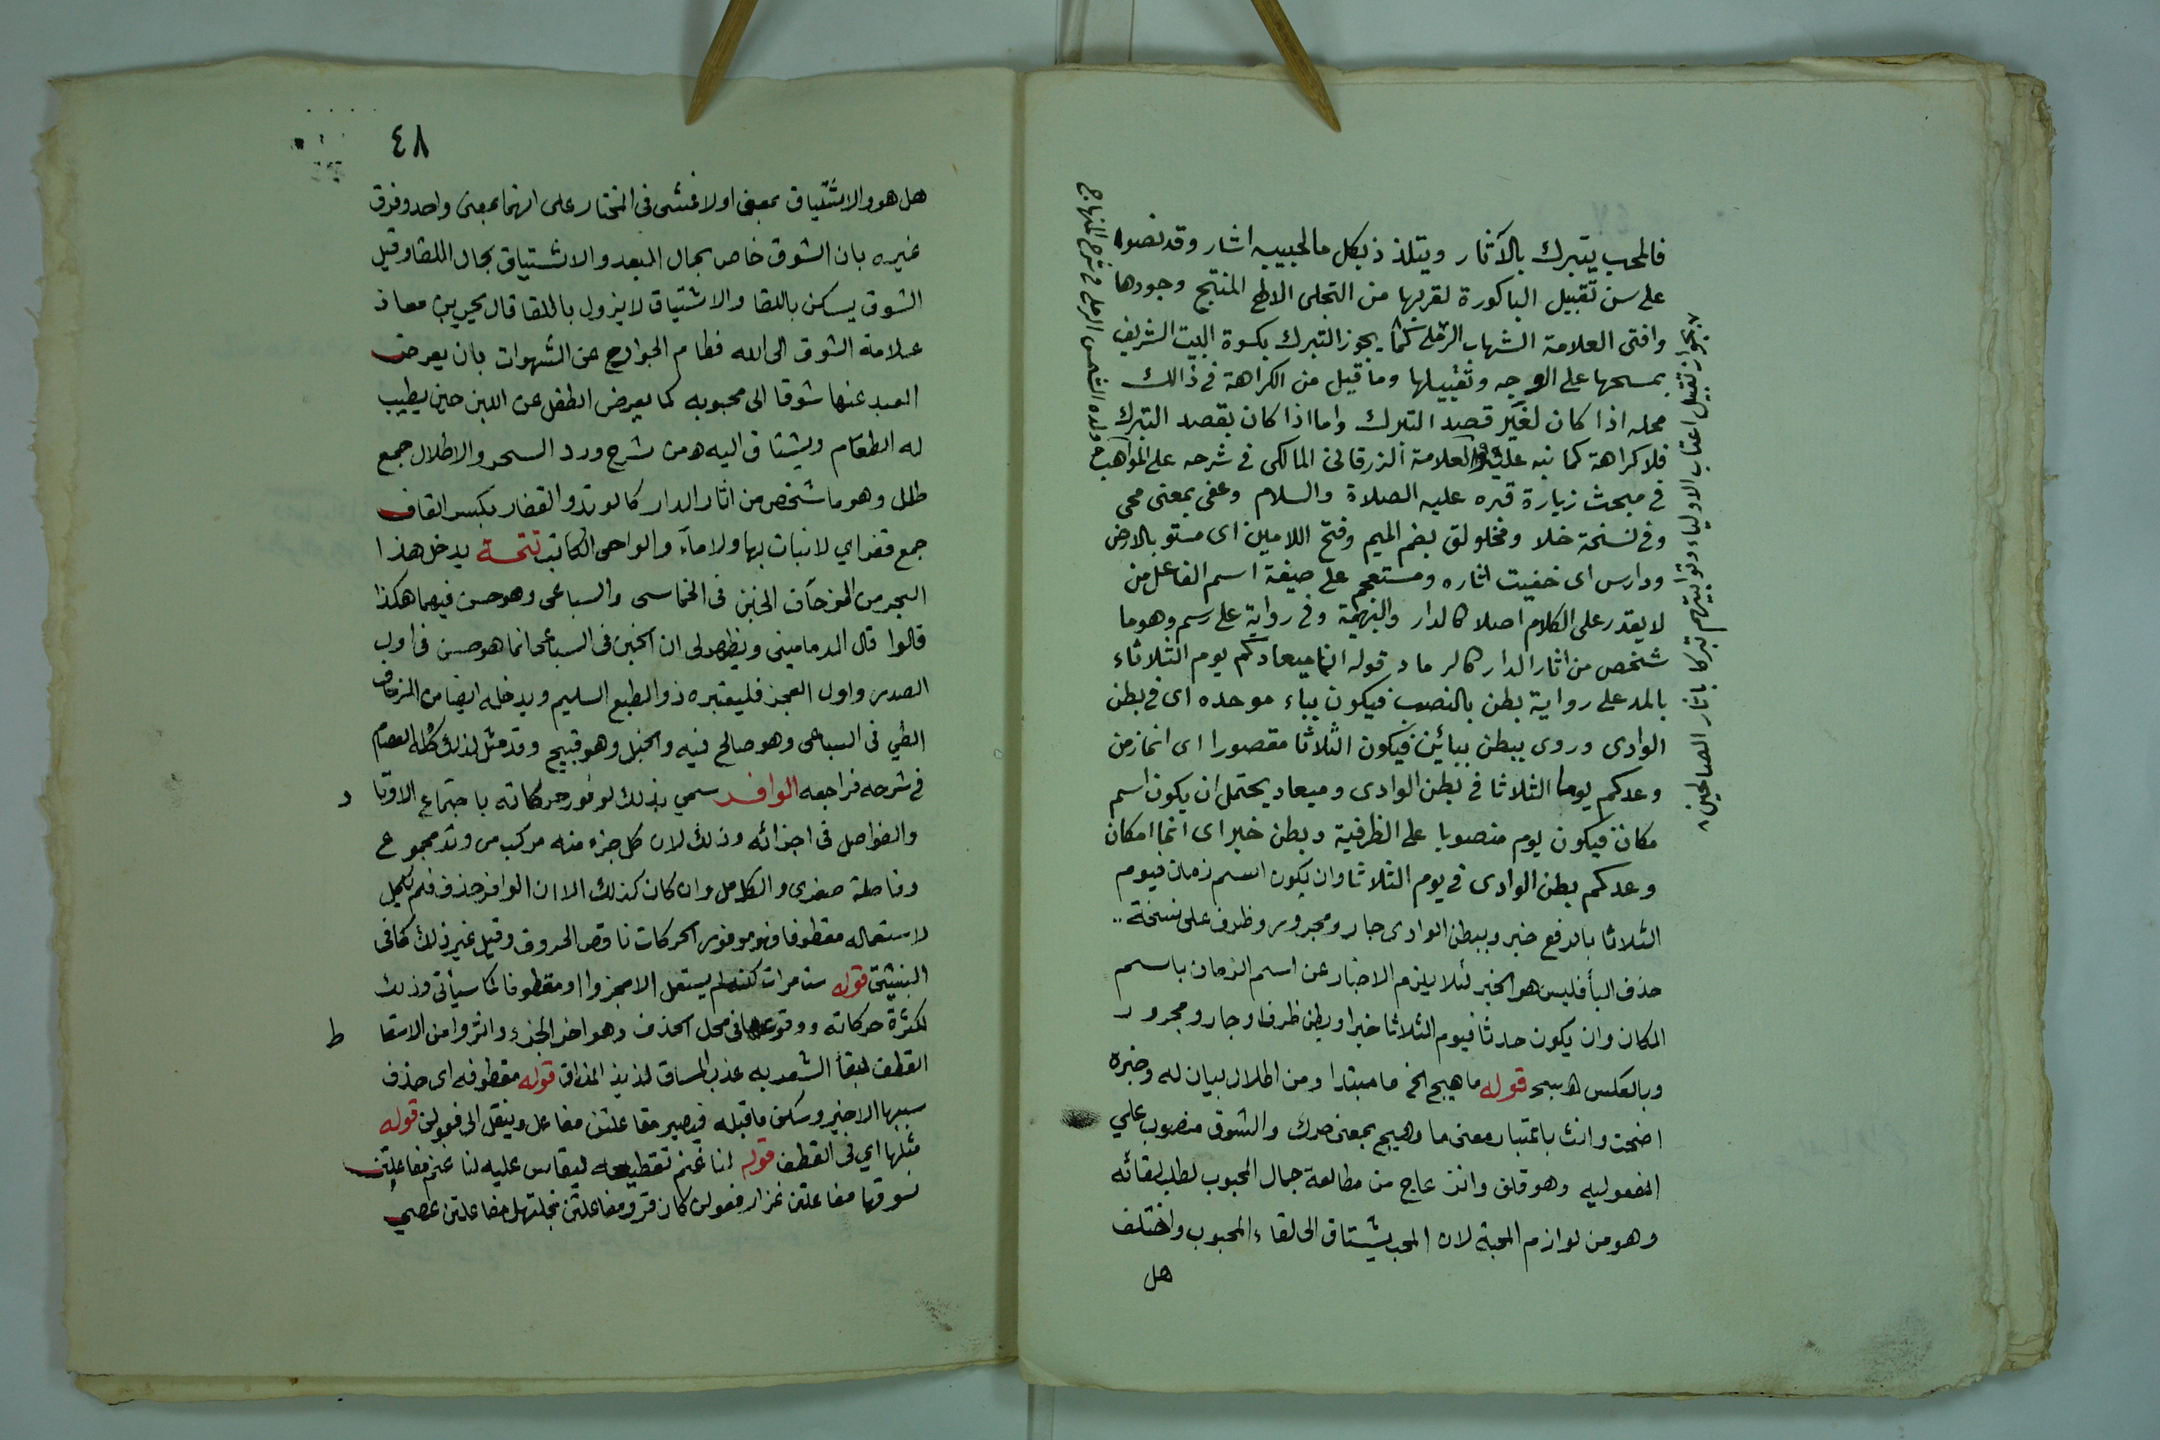 فالمحب يتبرك بالآثار ويتلذذ بكل ما لحبيبه اشار وقد نصوا
على سن تقبيل الباكورة لقربها من التجلى الالهى المنتج وجودها
وافتى العلامة الشهاب الرملى كما يجوز التبرك بكسوة البيت الشريف
بمسحها على الوجه وتقبيلها وما قيل من الكراهة فى ذالك
محله اذا كان لغير قصد التبرك واما اذا كان بقصد التبرك
فلا كراهة كما نبه عليه العلامة الزرقانى المالكى فى شرحه على المواهب
فى مبحث زيارة قبره عليه الصلاة والسلام وعفى بمعنى محى
وفى نسخة خلا ومخلولق بضم الميم وفتح اللامين اى مستو بالارض
ودارس اى خفيت اثاره ومستعجم على صيغة اسم الفاعل من
لا يقدر على الكلام اصلا كالدار والبهيمة وفى رواية على رسم وهو ما
شخص من اثار الدار كالرماد قوله انما ميعادكم يوم الثلاثاء
بالمد على رواية بطن بالنصب فيكون بباء موحده اى فى بطن
الوادى وروى ببطن ببائين فيكون الثلاثا مقصورا اى انما زمن
وعدكم يوما الثلاثا فى بطن الوادى وميعاد يحتمل ان يكون اسم
مكان فيكون يوم منصوبا على الظرفية وبطن خبر اى انما امكان
وعدكم بطن الوادى فى يوم الثلاثا وان يكون اسم زمان فيوم
الثلاثا بالرفع خبر وببطن الوادى جار ومجرور وظرف على نسخة
حذف البأ فليس هو الخبر لئلا يلزم الاخبار عن اسم الزمان باسم
المكان وان يكون حدثا فيوم الثلاثا خبرا وبطن ظرفا وجار ومجرور
وبالعكس قوله ما هيج الخ ما مبتدا ومن اطلال بيان له وخبره
اضحت وانث باعتبار معنى ما وهيج بمعنى حرك والشوق منصوب على
المفعوليه وهو قلق وانزعاج من مطالعة جمال المحبوب لطلب لقائه
وهو من لوازم المحبة لان المحب يشتاق الى لقاء المحبوب واختلف
هل
يجوز تقبيل اعتاب الاولياء وتوابيتهم تبركا بآثار الصالحين
ولده الشمس الرملى فى شرح المنهاج
٤٨
هل هو والاشتياق بمعنى اولا فمشى فى المختار على انهما بمعنى واحد وفرق
غيره بان الشوق خاص بحال البعد والاشتياق بحال اللقا وقيل
الشوق يسكن باللقا والاشتياق لا يزول باللقا قال يحيى بن معاذ
علامة الشوق الى الله فطام الجوارح عن الشهوات بان يعرض
العبد عنها شوقا الى محبوبه كما يعرض الطفل عن اللبن حين يطيب
له الطعام ويشتاق اليه من شرح ورد السحر والاطلال جمع
طلل وهو ما شخص من اثار الدار كالوتد والقفار بكسر القاف
جمع قفر اي لا نبات بها ولا مآء والواحى الكاتب تتمة يدخل هذا
البحر من الزحاف الخبن فى الخماسى والسباعى وهو حسن فيهما هكذا
قالوا قال الدمامينى ويظهر لى ان الخبن فى السباعى انما هو حسن فى اول
الصدر واول العجز فليعتبره ذو الطبع السليم ويدخله ايضا من الزحاف
الطي فى السباعى وهو صالح فيه والخبل وهو قبيح وقد مثل لذلك كله العصام
فى شرحه فراجعه الوافر سمي بذلك لوفور حركاته باجتماع الاوتا
د
والفواصل فى اجزائه وذلك لان كل جزء منه مركب من وتد مجموع
وفاصلة صغرى والكامل وان كان كذلك الا ان الوافر حذف فلم يكمل
لاستعماله مقطوفا فهو موفور الحركات ناقص الحروف وقيل غير ذلك كما فى
النبتيتى قوله ست مرات كنه لم يستعمل الا مجزوا او مقطوفا كما سيأتى وذلك
لكثرة حركاته ووقوعها فى محل الحذف وهو اخر الجزء والتزموا من الاسقا
ط
القطف لبقأ الشعر به عذب المساق لذيذ المذاق قوله مقطوفه اى حذف
سببها الاخير وسكن ما قبله فيصير مفاعلتن مفاعل وينقل الى فعولن قوله
مثلها اي فى القطف قوله لنا غنم تقطيعه ليقاس عليه لنا غنم مفاعلتن
نسوقها مفاعلتن غزار فعولن كان قرو مفاعلتن نجلتهل مفاعلتن عصي